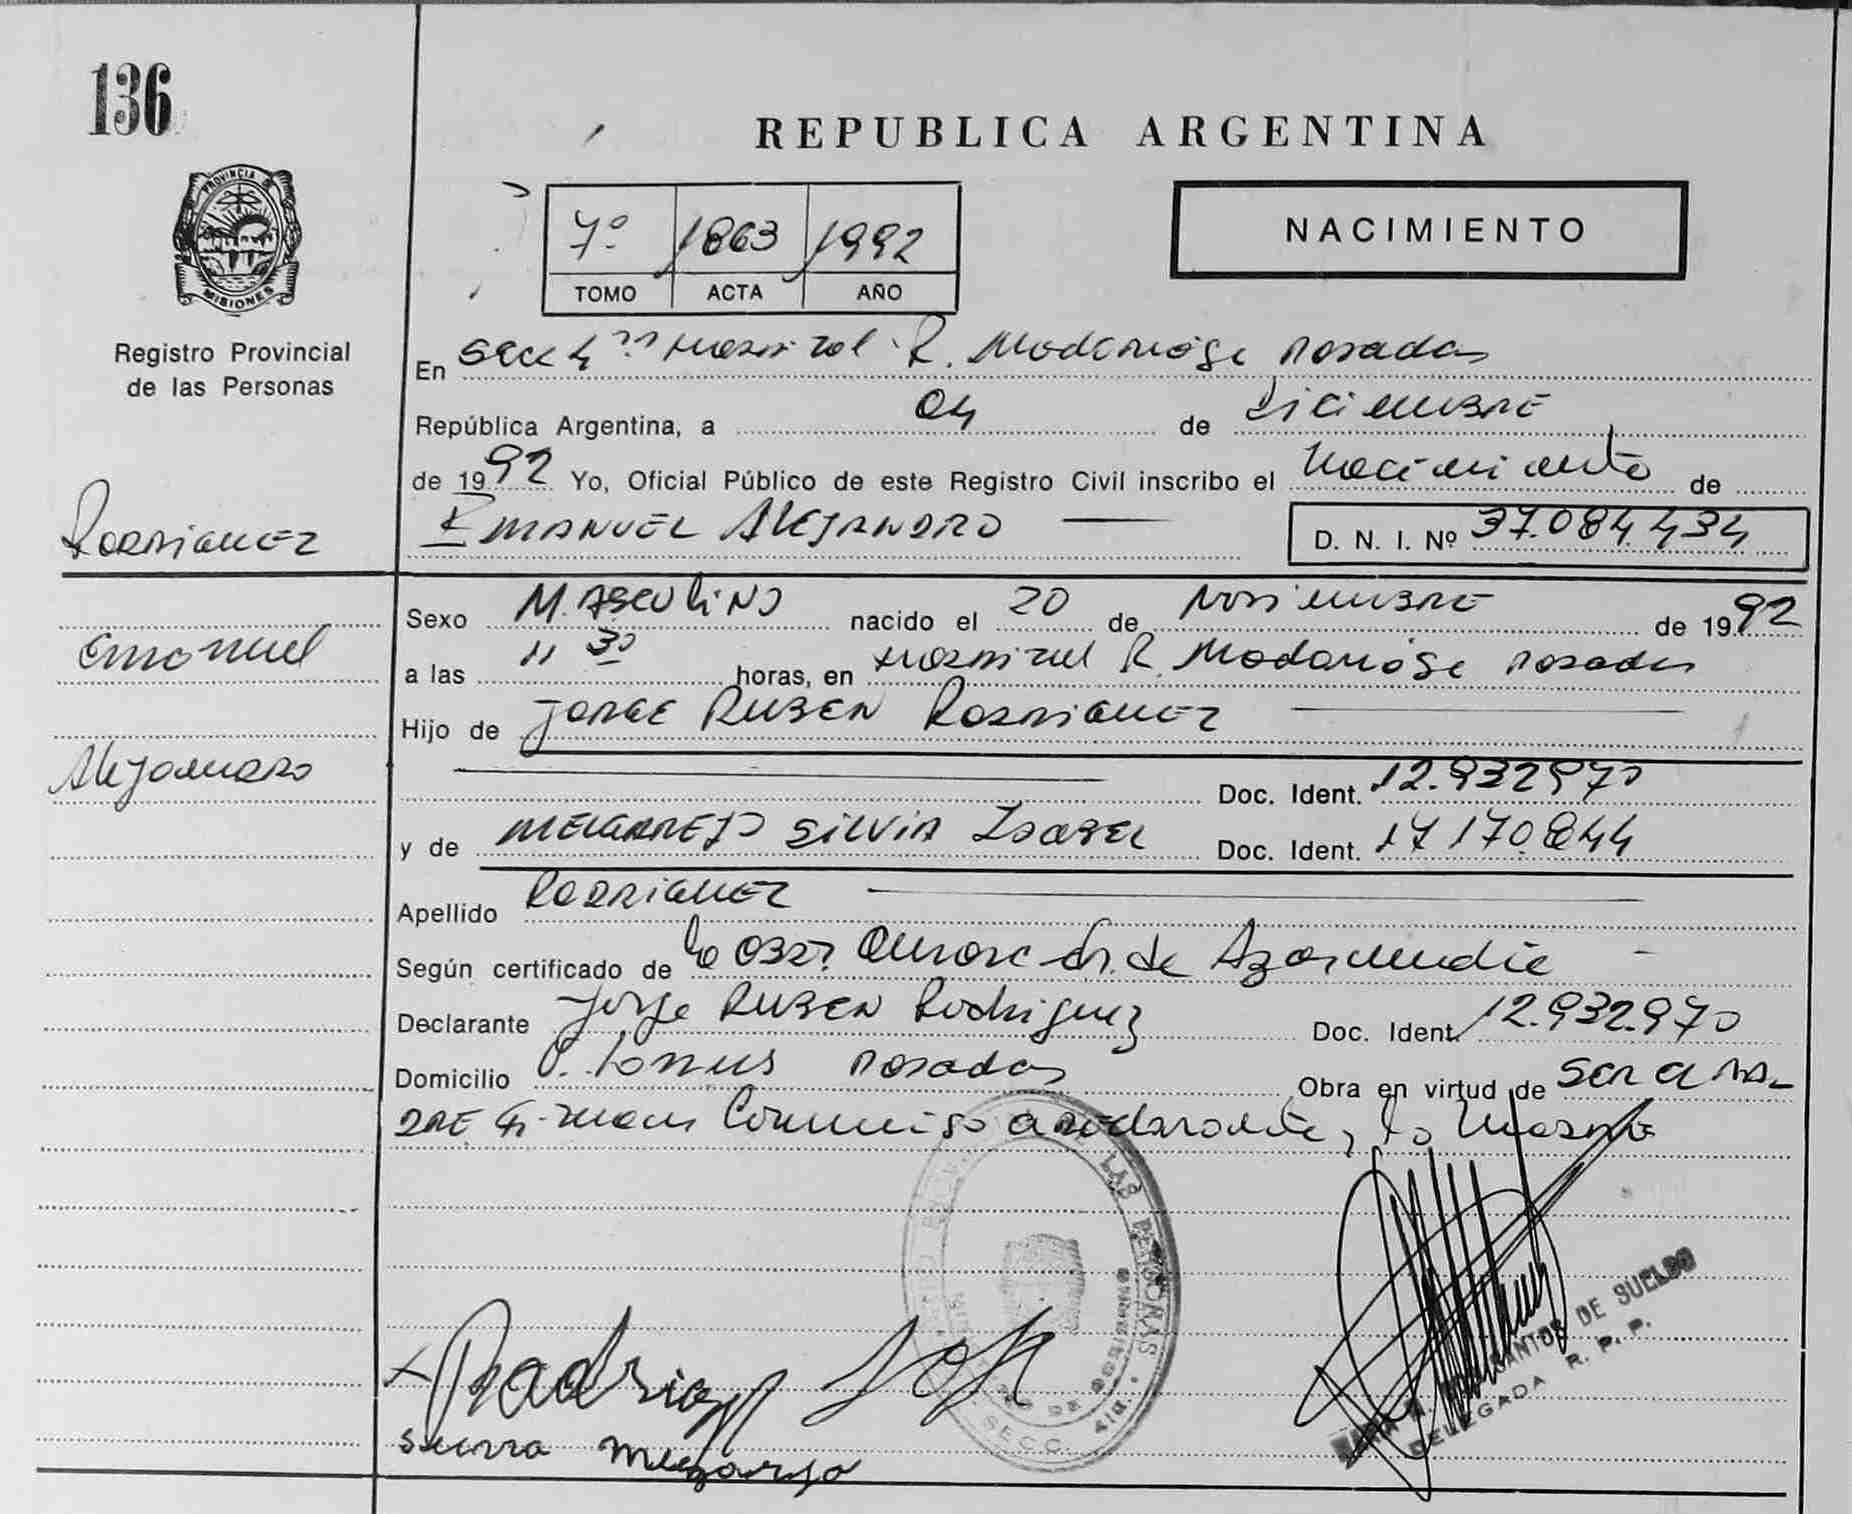 136
REPUBLICA ARGENTINA
PROVINCIA DE
MISIONES
Registro Provincial
de las Personas
7º 1863 1992
TOMO ACTA AÑO
NACIMIENTO
En Secc 4ta Hospital R. Madariaga Posadas
República Argentina, a 04 de Diciembre
de 1992 Yo, Oficial Público de este Registro Civil inscribo el Nacimiento de
Rodriguez
EMANUEL ALEJANDRO
D. N. I. Nº 37.084.434
Sexo MASCULINO nacido el 20 de Noviembre de 1992
Emanuel
a las 11 30 horas, en Hospital R. Madariaga Posadas
Hijo de Jorge Ruben Rodriguez
Alejandro
Doc. Ident. 12.932970
y de MELGAREJO SILVIA Isabel Doc. Ident. 17170.844
Apellido Rodriguez
Según certificado de la Obst. de
Declarante Jorge Ruben Rodriguez Doc. Ident. 12.932.970
Domicilio Posadas Obra en virtud de ser el pa-
dre Firman Conmigo el declarante, la Madre
LAS PERSONAS
SECC.
Rodriguez
Melgarejo
DE SUELDO
DELEGADA R. P. P.